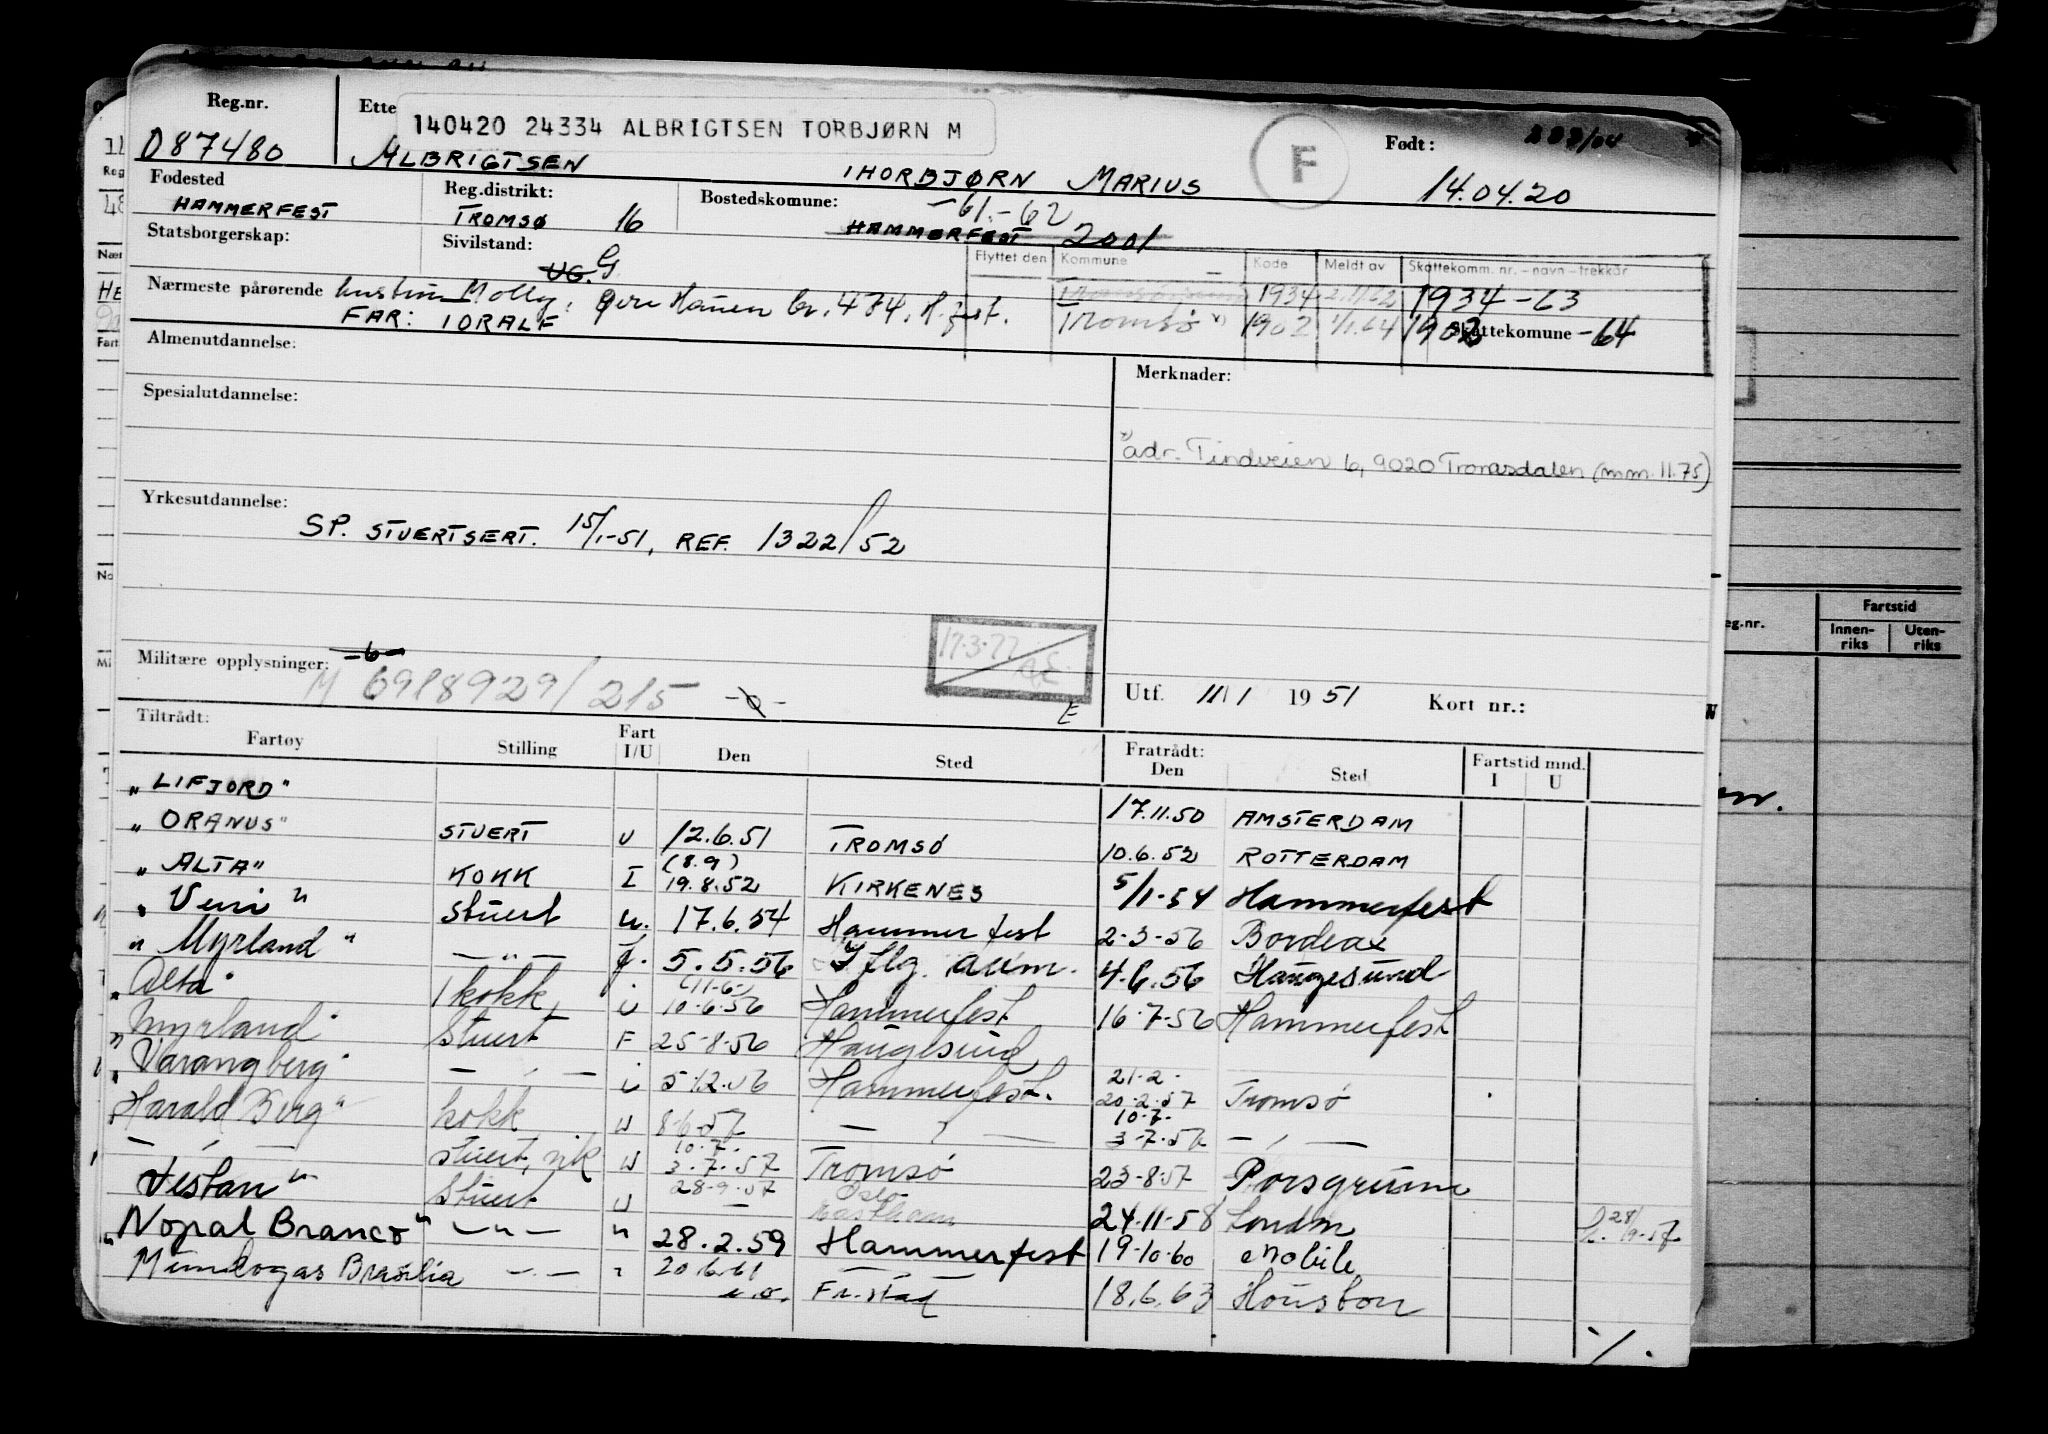 Reg.nr.
Ette
140420 24334 ALBRIGTSEN TORBJØRN M
F
Født:
D87480
ALBRIGTSEN THORBJØRN MARIUS
14.04.20
Fødested
HAMMERFEST
Reg.distrikt:
TROMSØ 16
Bostedskomune:
-61-62
HAMMERFEST 2001
Statsborgerskap:
Sivilstand:
UG. G
Flyttet den Kommune Kode Meldt av Skattekomm. nr. - navn - trekkår
Nærmeste pårørende hustru Molly, Øvre Hauen br. 474, H.fest.
1934 1934-63
FAR: TORALF
Tromsø x) 1902 1/1.64 1902 Skattekomune -64
Almenutdannelse:
Merknader:
Spesialutdannelse:
x) adr. Tindveien 6, 9020 Tromsdalen (mm. 11.75)
Yrkesutdannelse:
SP. STUERTSERT. 15/1-51, REF. 1322/52
17.3.77
Militære opplysninger: -6-
M 6918929/215
E
Utf. 11/1 1951 Kort nr.:
Tiltrådt:
Fartøy Stilling Fart I/U Den Sted Fratrådt: Den Sted Fartstid mnd. I U
"LIFJORD" 17.11.50 AMSTERDAM
"ORANUS" STUERT U 12.6.51 TROMSØ 10.6.52 ROTTERDAM
"ALTA" KOKK I (8.9) 19.8.52 KIRKENES 5/1-54 Hammerfest
"Veni" Stuert u. 17.6.54 Hammerfest 2-3-56 Bordeax
"Myrland" — " — f. 5.5.56 4.6.56 Haugesund
"Alta" kokk i (11-6) 10-6-56 Hammerfest 16-7-56 Hammerfest
"Myrland" Stuert F 25-8-56 Haugesund
"Varangberg" — " — i 5-12-56 Hammerfest. 21-2- 20-2-57 Tromsø
"Harald Berg" kokk U 8-6-57 — " — 10-7- 3-7-57 — " —
— " — stuert, vik U 10-7- 3-7-57 Tromsø 23-8-57 Porsgrunn
"Vestan" Stuert U 28-9-57 — Oslo 24-11-58 London 28/9-57
"Nopal Branco" — " — " 28.2.59 Hammerfest 19-10-60 Mobile
Mundogas Brasilia — " — " 20.6.61 Fr.stad 18.6.63 Houston
Fartstid
Innen-riks Uten-riks
eg.nr.